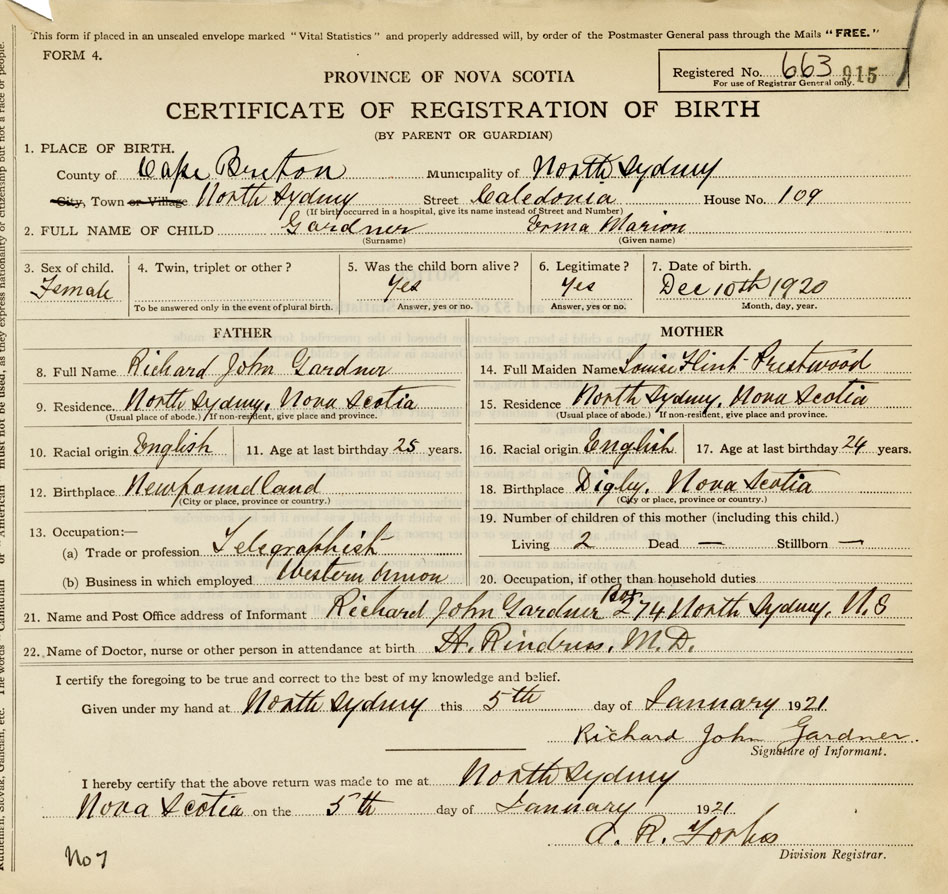 This form if placed in an unsealed envelope marked "Vital Statistics" and properly addressed will, by order of the Postmaster General pass through the Mails "FREE."
FORM 4.
Registered No. 663 915
For use of Registrar General only.
PROVINCE OF NOVA SCOTIA
CERTIFICATE OF REGISTRATION OF BIRTH
(BY PARENT OR GUARDIAN)
1. PLACE OF BIRTH.
County of Cape Breton Municipality of North Sydney
City, Town or Village North Sydney Street Caledonia House No. 109
(If birth occurred in a hospital, give its name instead of Street and Number)
2. FULL NAME OF CHILD Gardner Erma Marion
(Surname) (Given name)
3. Sex of child. 4. Twin, triplet or other? 5. Was the child born alive? 6. Legitimate? 7. Date of birth.
Female Yes Yes Dec 10th 1920
To be answered only in the event of plural birth. Answer, yes or no. Answer, yes or no. Month, day, year.
FATHER
8. Full Name Richard John Gardner
9. Residence. North Sydney, Nova Scotia
(Usual place of abode.) If non-resident, give place and province.
10. Racial origin English 11. Age at last birthday 25 years.
12. Birthplace Newfoundland
(City or place, province or country.)
13. Occupation:—
(a) Trade or profession Telegraphist
(b) Business in which employed Western Union
MOTHER
14. Full Maiden Name Louise Flint Prestwood
15. Residence North Sydney, Nova Scotia
(Usual place of abode.) If non-resident, give place and province.
16. Racial origin English 17. Age at last birthday 24 years.
18. Birthplace Digby, Nova Scotia
(City or place, province or country.)
19. Number of children of this mother (including this child.)
Living 2 Dead — Stillborn —
20. Occupation, if other than household duties
21. Name and Post Office address of Informant Richard John Gardner Box 274 North Sydney, N.S
22. Name of Doctor, nurse or other person in attendance at birth H. M.D.
I certify the foregoing to be true and correct to the best of my knowledge and belief.
Given under my hand at North Sydney this 5th day of January 1921
Richard John Gardner.
Signature of Informant.
I hereby certify that the above return was made to me at North Sydney
Nova Scotia on the 5th day of January 1921
A. R. Forbes
Division Registrar.
No 7